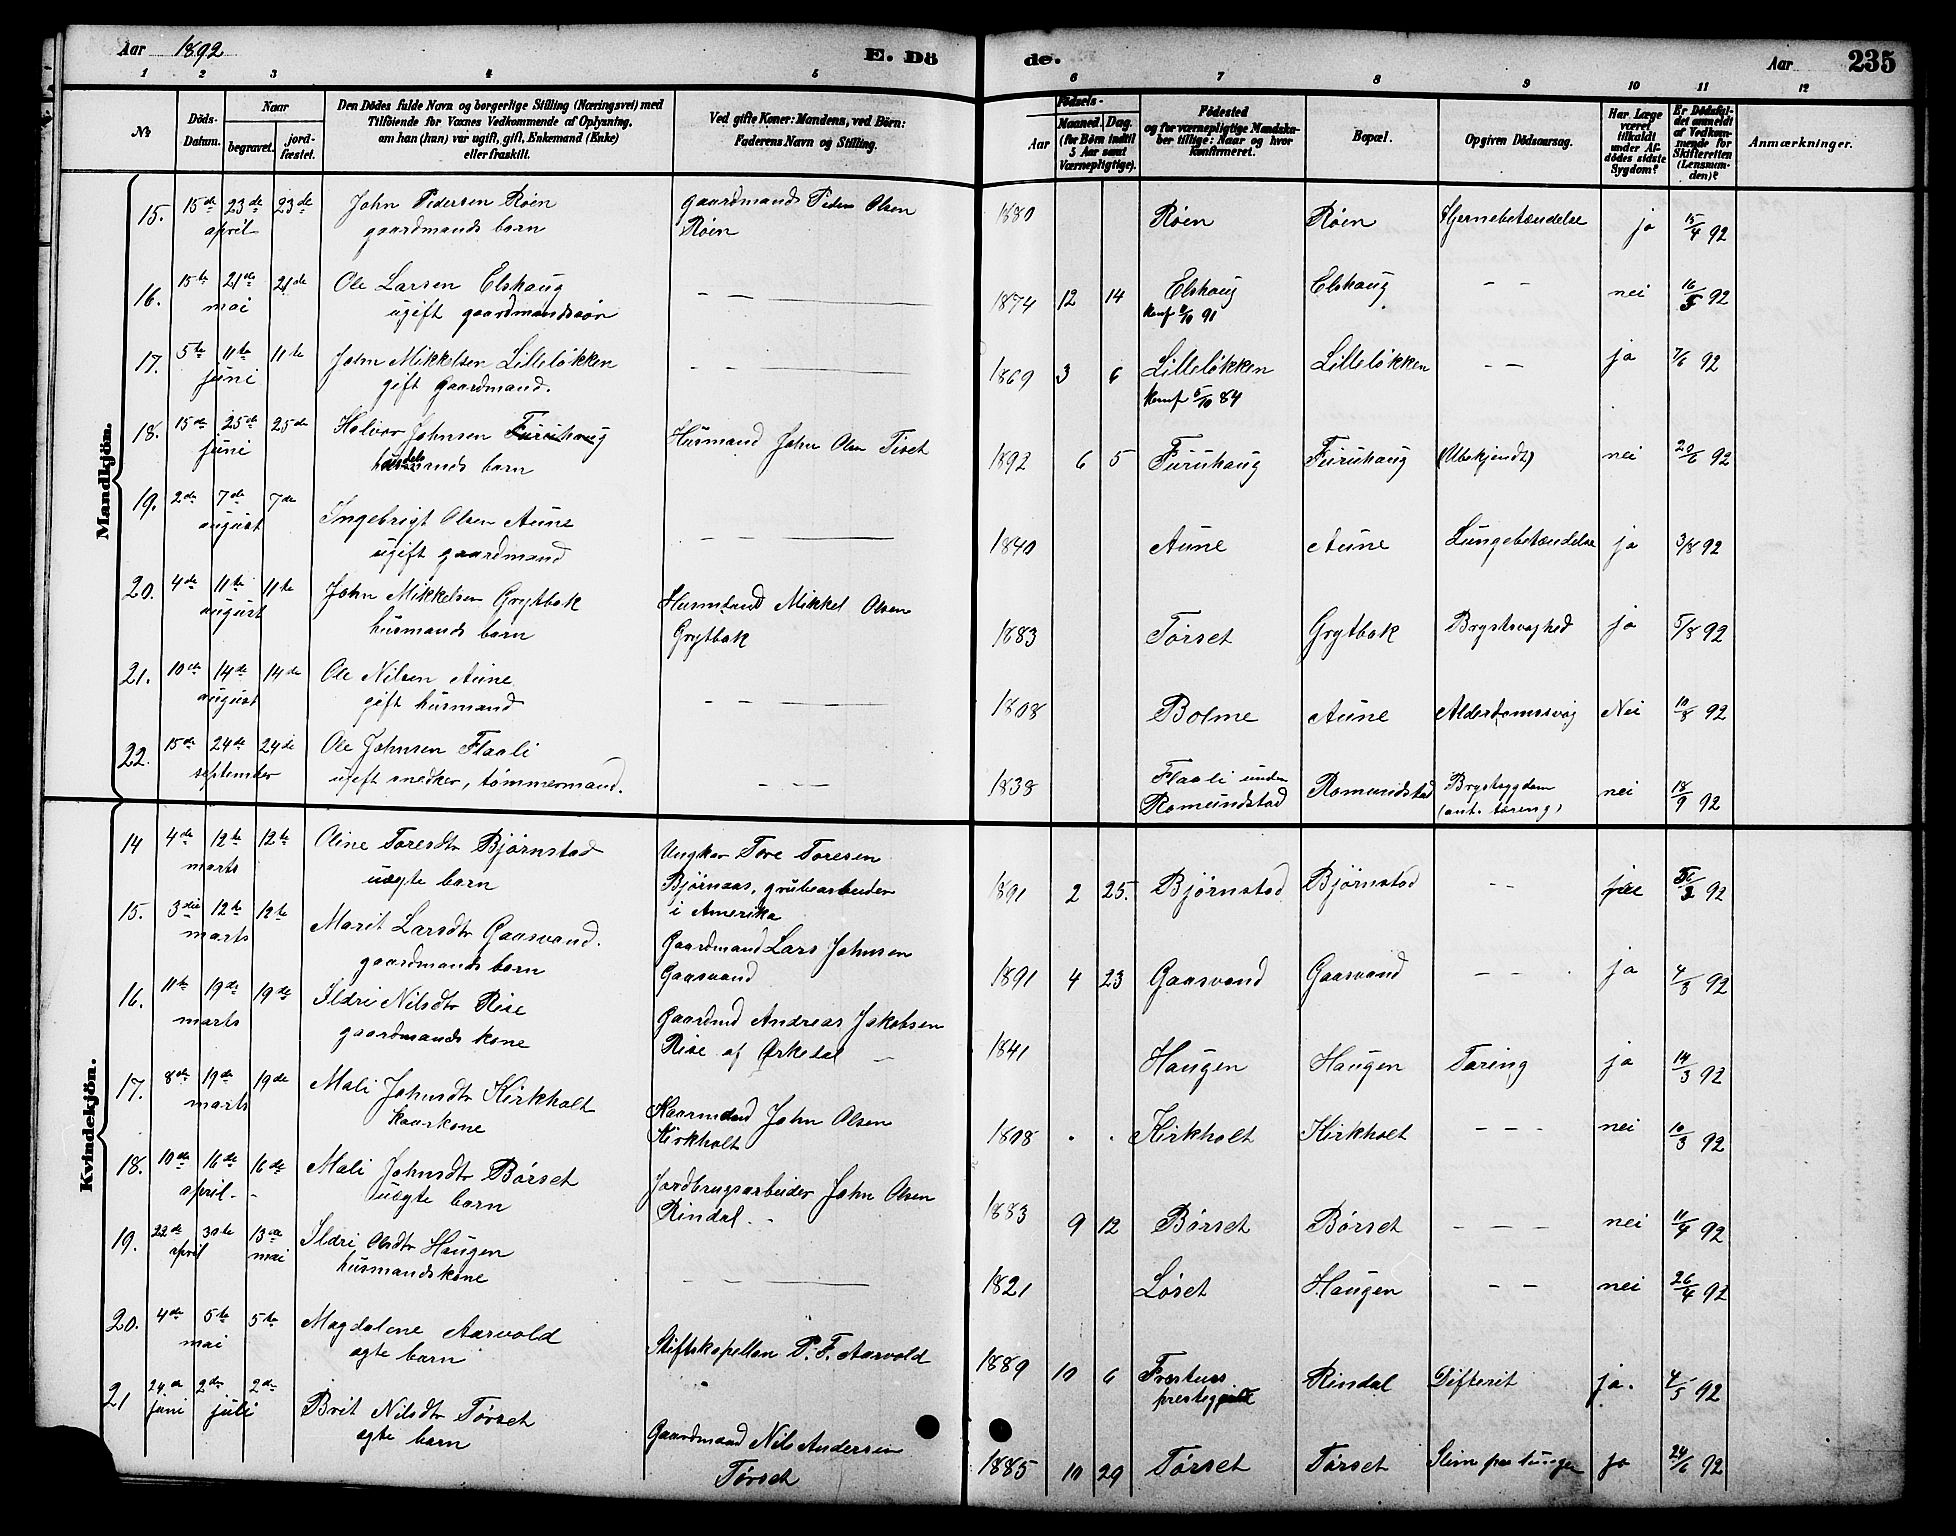 Aar 1892
E. Döde.
Aar 235
1 2 3 4 5 6 7 8 9 10 11 12
No
Döds-Datum.
Naar
begravet. jordfæstet.
Den Dödes fulde Navn og borgerlige Stilling (Næringsvei) med
Tilföiende for Voxnes Vedkommende af Oplysning,
om han (hun) var ugift, gift, Enkemand (Enke)
eller fraskilt.
Ved gifte Koner: Mandens, ved Börn:
Faderens Navn og Stilling.
Födsels-
Aar Maaned. Dag.
(for Börn indtil
5 Aar samt
Værnepligtige).
Födested
og for værnepligtige Mandskaber tillige: Naar og hvor
konfirmeret.
Bopæl.
Opgiven Dödsaarsag.
Har Læge
været
tilkaldt
under Afdödes sidste
Sygdom?
Er Dödsfaldet anmeldt
af Vedkommende for
Skifteretten
(Lensmanden)?
Anmærkninger.
Mandkjön.
15. 15de 23de 23de John Pedersen Röen gaardmands Peder Olsen 1880 Röen Röen Hjernebetændelse ja 15/4 92
april gaardmands barn Röen
16. 15te 21de 21de Ole Larsen Elshaug – – 1874 12 14 Elshaug Elshaug – – nei 16/5 92
mai ugift gaardmandssön konf. /10 91
17. 5te 11te 11te John Mikkelsen Lillelökken – – 1869 3 6 Lillelökken Lillelökken – – ja 7/6 92
juni gift gaardmand. konf 5/10 84
18. 15de 25de 25de Halvor Johnsen Furuhaug Husmand John Olsen Tiset 1892 6 5 Furuhaug Furuhaug (Ubekjendt) nei 20/6 92
juni barn
19. 2de 7de 7de Ingebrigt Olsen Aune – – 1840 Aune Aune Lungebetændelse ja 3/8 92
august ugift gaardmand
20. 4de 11te 11te John Mikkelsen Grytbak Husmand Mikkel Olsen 1883 Törset Grytbak Brystsvaghed ja 5/8 92
august husmands barn Grytbak
21. 10de 14de 14de Ole Nilsen Aune – – 1808 Bolme Aune Alderdomssvag Nei 10/8 92
august gift husmand
22. 15de 24de 24de Ole Johnsen Flaali – – – 1838 Flaali under Romundstad Brystsygdom nei 18/9 92
september ugift snedker, tömmermand. Romundstad (ant. tæring)
Kvindekjön.
14 4de 12te 12te Oline Toresdtr Björnstad Ungkar Tore Toresen 1891 2 25. Björnstad Björnstad – – 92
marts uægte barn Björnaas, grubearbeider
i Amerika
15. 3die 12te 12te Marit Larsdtr Gaasvand. Gaardmand Lars Johnsen 1891 4 23 Gaasvand Gaasvand – – ja 4/3 92
marts gaardmands barn Gaasvand
16. 11te 19de 19de Ildri Nilsdtr Rise Gaardmd Andreas Jakobsen 1841 Haugen Haugen Tæring ja 14/3 92
marts gaardmands kone Rise af Örkedal –
17. 8de 19de 19de Mali Johnsdtr Kirkholt Kaarmand John Olsen 1808 Kirkholt Kirkholt – – – nei 10/3 92
marts kaarkone Kirkholt
18. 10de 16de 16de Mali Johnsdtr Börset Jordbrugsarbeider John Olsen 1883 9 12 Börset Börset – – – nei 11/4 92
april. uægte barn Rindal. –
19. 22de 30te 13de Ildri Olsdtr Haugen – – 1821 Löset Haugen – – nei 26/4 92
april mai husmandskone
20. 4de 5te 5te Magdalene Aarvold Stiftskapellan P. F. Aarvold 1889 10 6 Rindal Difterit ja. 4/5 92
mai ægte barn
21 24de 2den 2den Brit Nilsdtr Törset Gaardmand Nils Andersen 1885 10 29 Törset Törset Slim paa lungen ja 24/6 92
juni juli ægte barn Törset